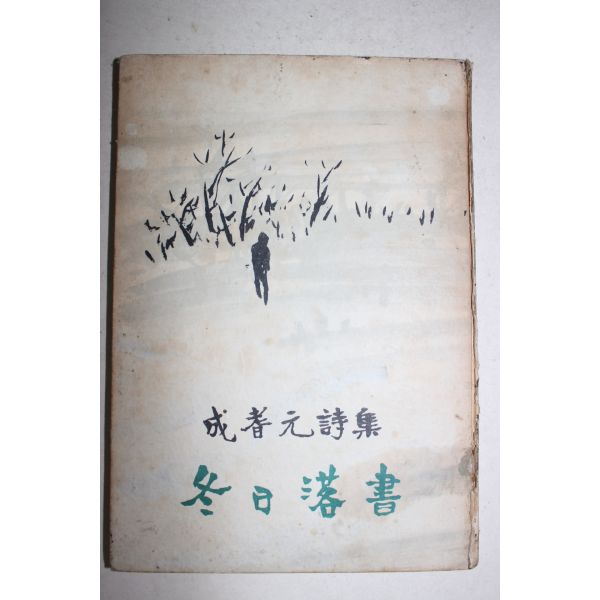 成耆元詩集
冬日落書